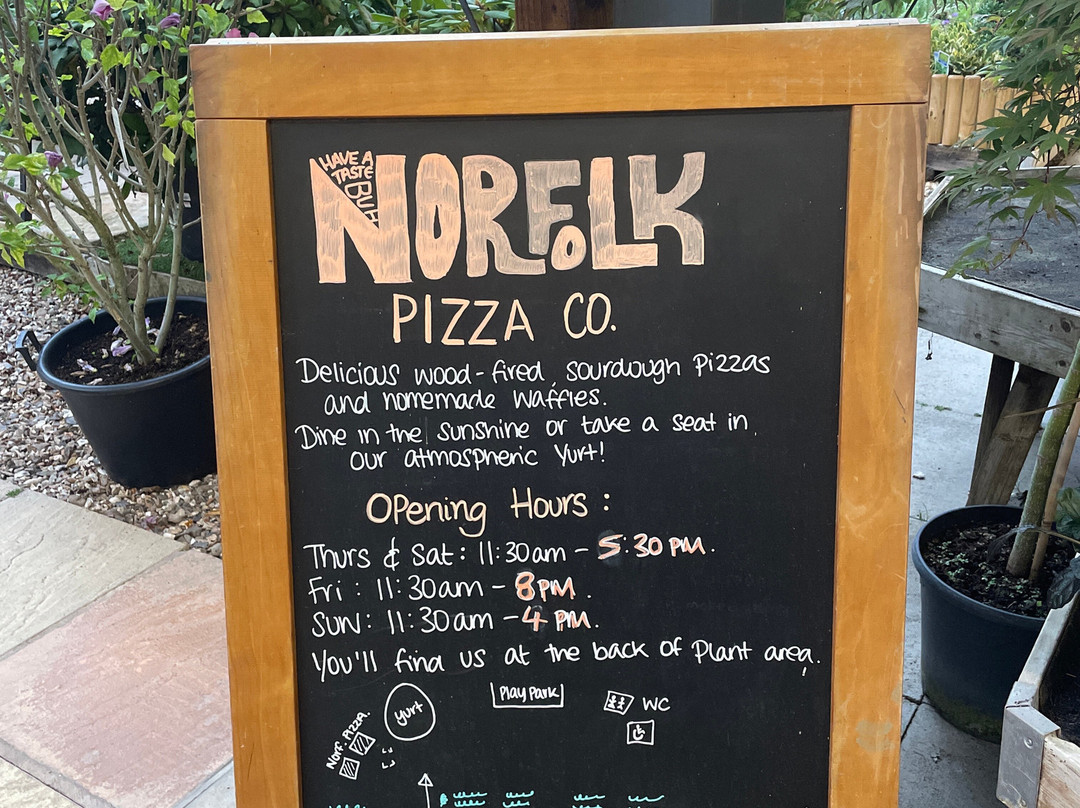 HAVE A
TASTE
BUH
NORFOLK
PIZZA CO.
Delicious wood-fired, sourdough Pizzas
and homemade Waffles.
Dine in the sunshine or take a seat in
our atmospheric Yurt!
Opening Hours:
Thurs & Sat: 11:30am - 5:30PM.
Fri: 11:30am - 8PM.
SUN: 11:30am - 4PM.
You'll find us at the back of Plant area.
Play Park
WC
yurt
Norf. Pizza.